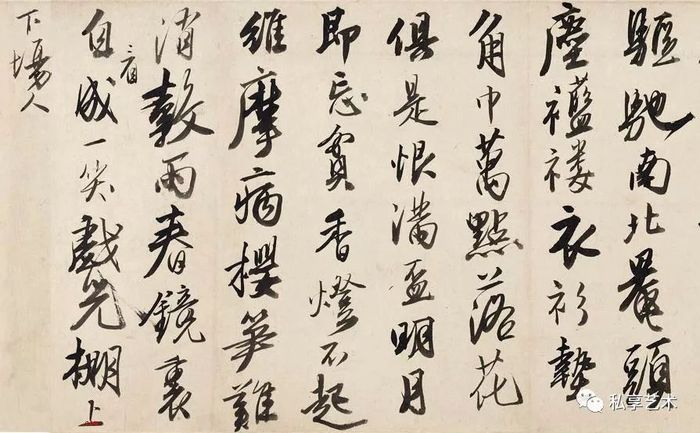 驅馳南北罨頭
塵襤褸衣衫墊
角巾萬點落花
俱是恨滿盃明月
即忘貧香燈不起
維摩病櫻笋難
消穀雨春鏡裏
自看成一笑戲兒棚上
下場人
私享艺术